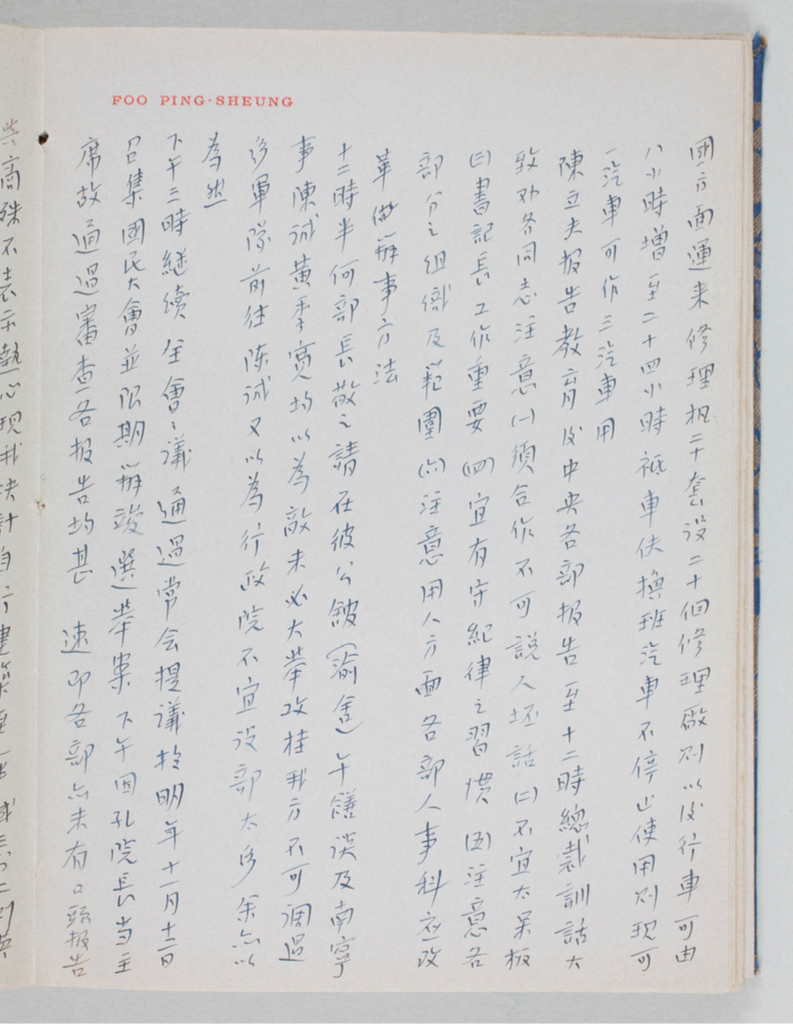 FOO PING-SHEUNG
國方面運来修理机二十套设二十個修理廠则以後行車可由
八小時增至二十四小時祗車伕換班汽車不停止使用则現可
一汽車可作三汽車用
陳立夫报告教育後中央各部报告至十二時總裁訓話大
致劝各同志注意㈠須合作不可説人坏話㈡不宜太呆板
㈢書記長工作重要㈣宜有守紀律之習慣㈤注意各
部分之组織及範圍㈥注意用人方面各部人事科应改
革做辦事方法
十二時半何部長敬之請在彼公館(渝舍)午饍谈及南寧
事陳诚黄季寬均以為敵未必大举攻桂我方不可调過
多軍隊前往陈诚又以為行政院不宜设部太多余亦以
為然
下午三時継续全會会議通過常会提議於明年十一月十二日
召集國民大會並限期辦竣選举案下午因孔院長当主
席故通過審查各报告均甚 速即各部亦未有口頭报告